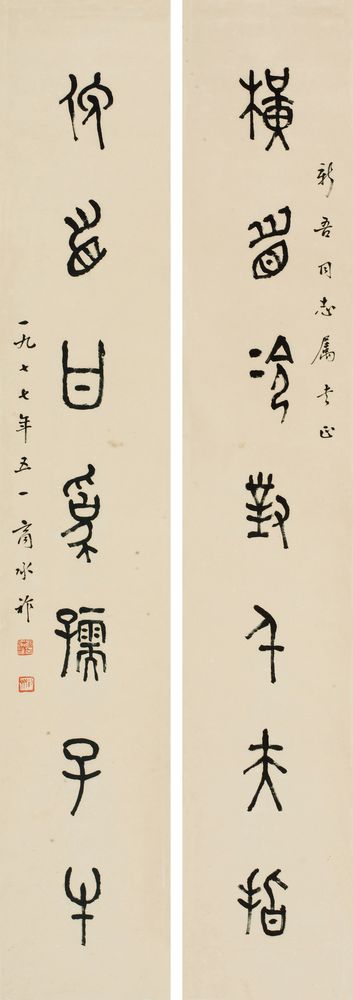 新吾同志属書正
橫眉冷對千夫指
俯首甘爲孺子牛
一九七七年五一商承祚